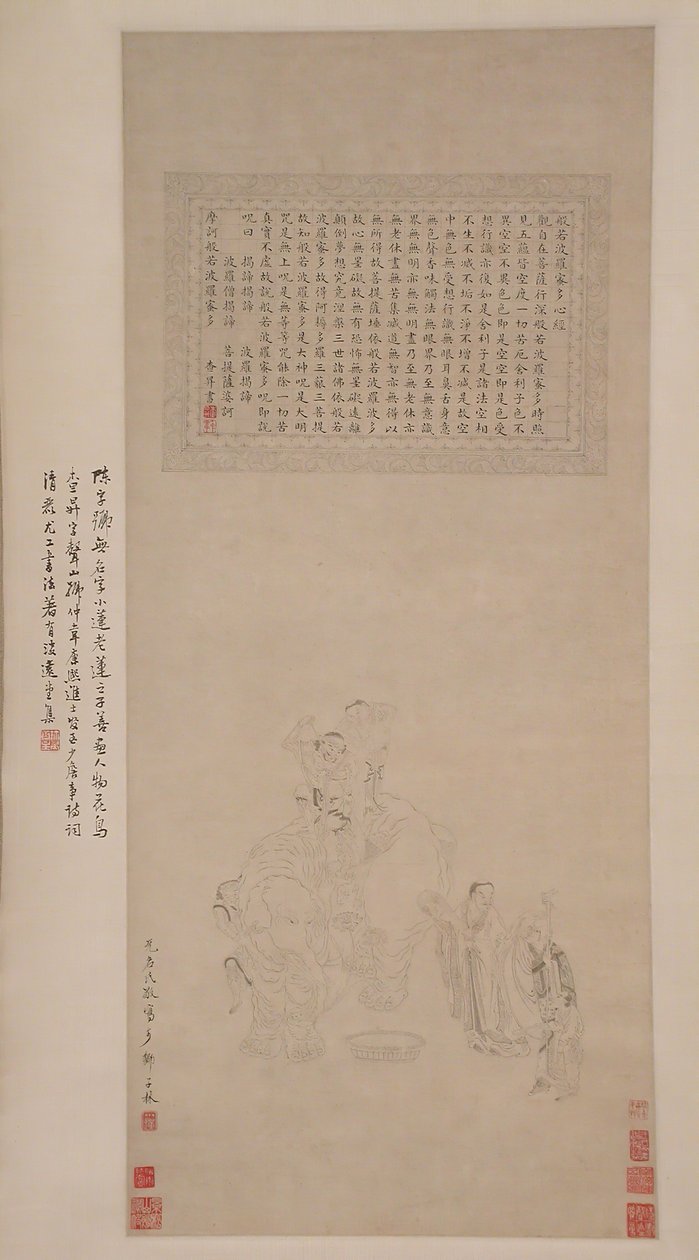 般若波羅蜜多心經
觀自在菩薩行深般若波羅蜜多時照
見五蘊皆空度一切苦厄舍利子色不
異空空不異色色即是空空即是色受
想行識亦復如是舍利子是諸法空相
不生不滅不垢不淨不增不減是故空
中無色無受想行識無眼耳鼻舌身意
無色聲香味觸法無眼界乃至無意識
界無無明亦無無明盡乃至無老死亦
無老死盡無苦集滅道無智亦無得以
無所得故菩提薩埵依般若波羅蜜多
故心無罣礙故無有恐怖無罣礙遠離
顛倒夢想究竟涅槃三世諸佛依般若
波羅蜜多故得阿耨多羅三藐三菩提
故知般若波羅蜜多是大神呪是大明
呪是無上呪是無等等呪能除一切苦
真實不虛故說般若波羅蜜多呪即說
呪曰 揭諦揭諦 波羅揭諦
波羅僧揭諦 菩提薩婆訶
摩訶般若波羅蜜多 查昇書
无名氏敬寫於獅子林
陳字號無名字小蓮老蓮之子善畫人物花鳥
查昇字聲山號仲韋康熙進士官至少詹事詩詞
清麗尤工書法著有澹遠堂集